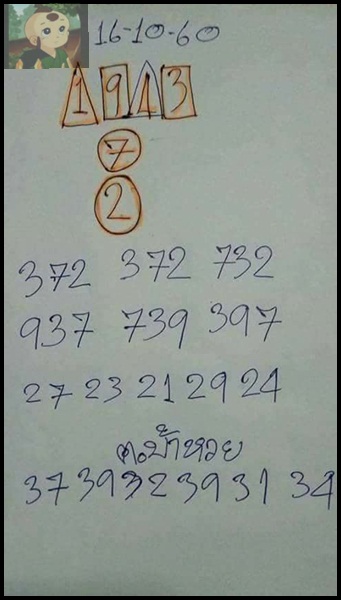 16-10-60
1 9 4 3
7
2
372 372 732
937 739 397
27 23 21 29 24
37 39 32 39 31 34